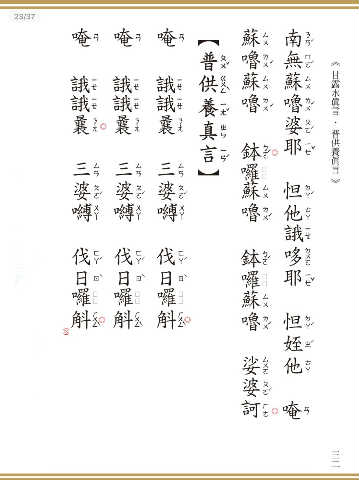 23/37
《甘露水真言．普供養真言》
南無蘇嚕婆耶　怛他誐哆耶　怛姪他　唵
蘇嚕蘇嚕　鉢囉蘇嚕　鉢囉蘇嚕　娑婆訶
【普供養真言】
唵　誐誐曩　三婆嚩　伐日囉斛
唵　誐誐曩　三婆嚩　伐日囉斛
唵　誐誐曩　三婆嚩　伐日囉斛